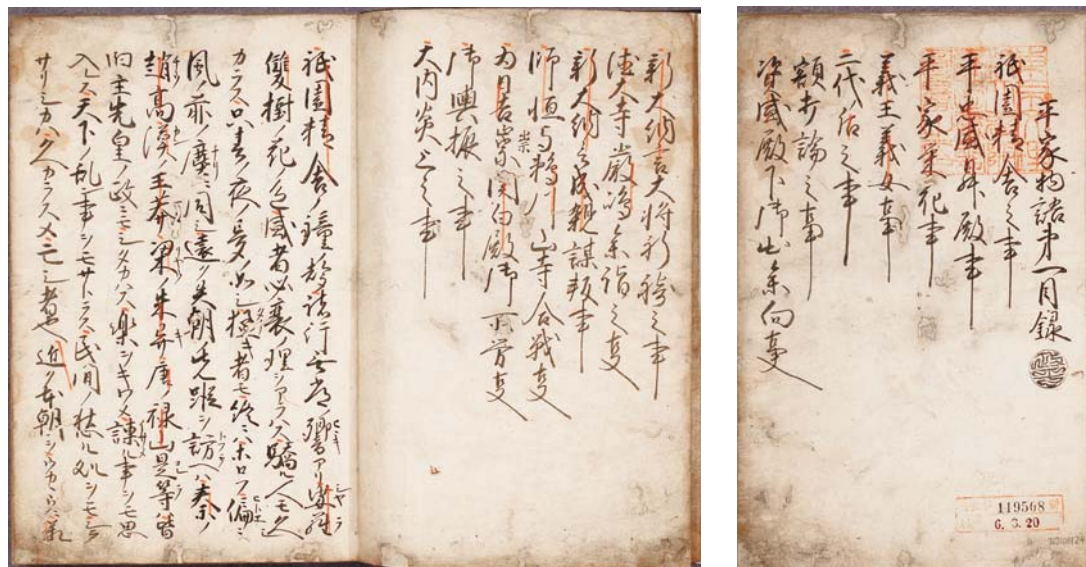 平家物語第一目録
祇園精舎之事
平忠盛昇殿事
平家栄花事
義王義女事
二代后之事
額打論之事
資盛殿下御出参向事
119568
6.3.20
新大納言大将祈祷之事
徳大寺厳嶋参詣之事
新大納言成親謀叛事
師恒与鵜川山寺合戦事
為日吉崇関白殿御所労事
御輿振之事
大内炎上之事
祇園精舎ノ鐘ノ声諸行無常ノ響アリ沙羅
雙樹ノ花ノ色盛者必衰ノ理ヲアラハス驕ル人モ久
カラス只春ノ夜ノ夢ノ如シ猛キ者モ終ニハホロフ偏ニ
風ノ前ノ塵ニ同シ遠ク異朝ノ先蹤ヲ訪ヘハ秦ノ
趙高漢ノ王莽梁ノ朱异唐ノ禄山是等皆
旧主先皇ノ政ニモシタカハス楽ヲキワメ諫ル事ヲモ思
入レス天下ノ乱ン事ヲモサトラス民間ノ愁ル処ヲモシラ
サリシカハ久カラスメ亡シ者也近ク本朝ヲウカヽウニ承